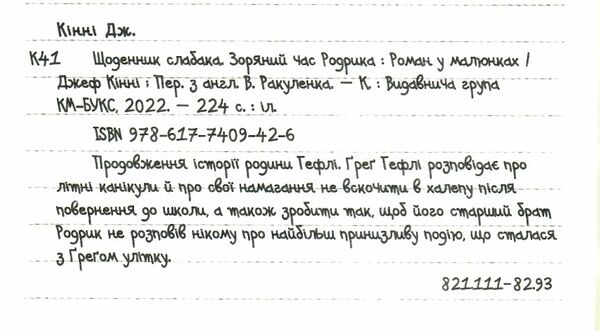 Кінні Дж.
К41 Щоденник слабака. Зоряний час Родрика : Роман у малюнках /
Джеф Кінні ; Пер. з англ. В. Ракуленка. — К. : Видавнича група
КМ-БУКС, 2022. — 224 с. : іл.
ISBN 978-617-7409-42-6
Продовження історії родини Гефлі. Ґреґ Гефлі розповідає про
літні канікули й про свої намагання не вскочити в халепу після
повернення до школи, а також зробити так, щоб його старший брат
Родрик не розповів нікому про найбільш принизливу подію, що сталася
з Ґреґом улітку.
821.111-82.93